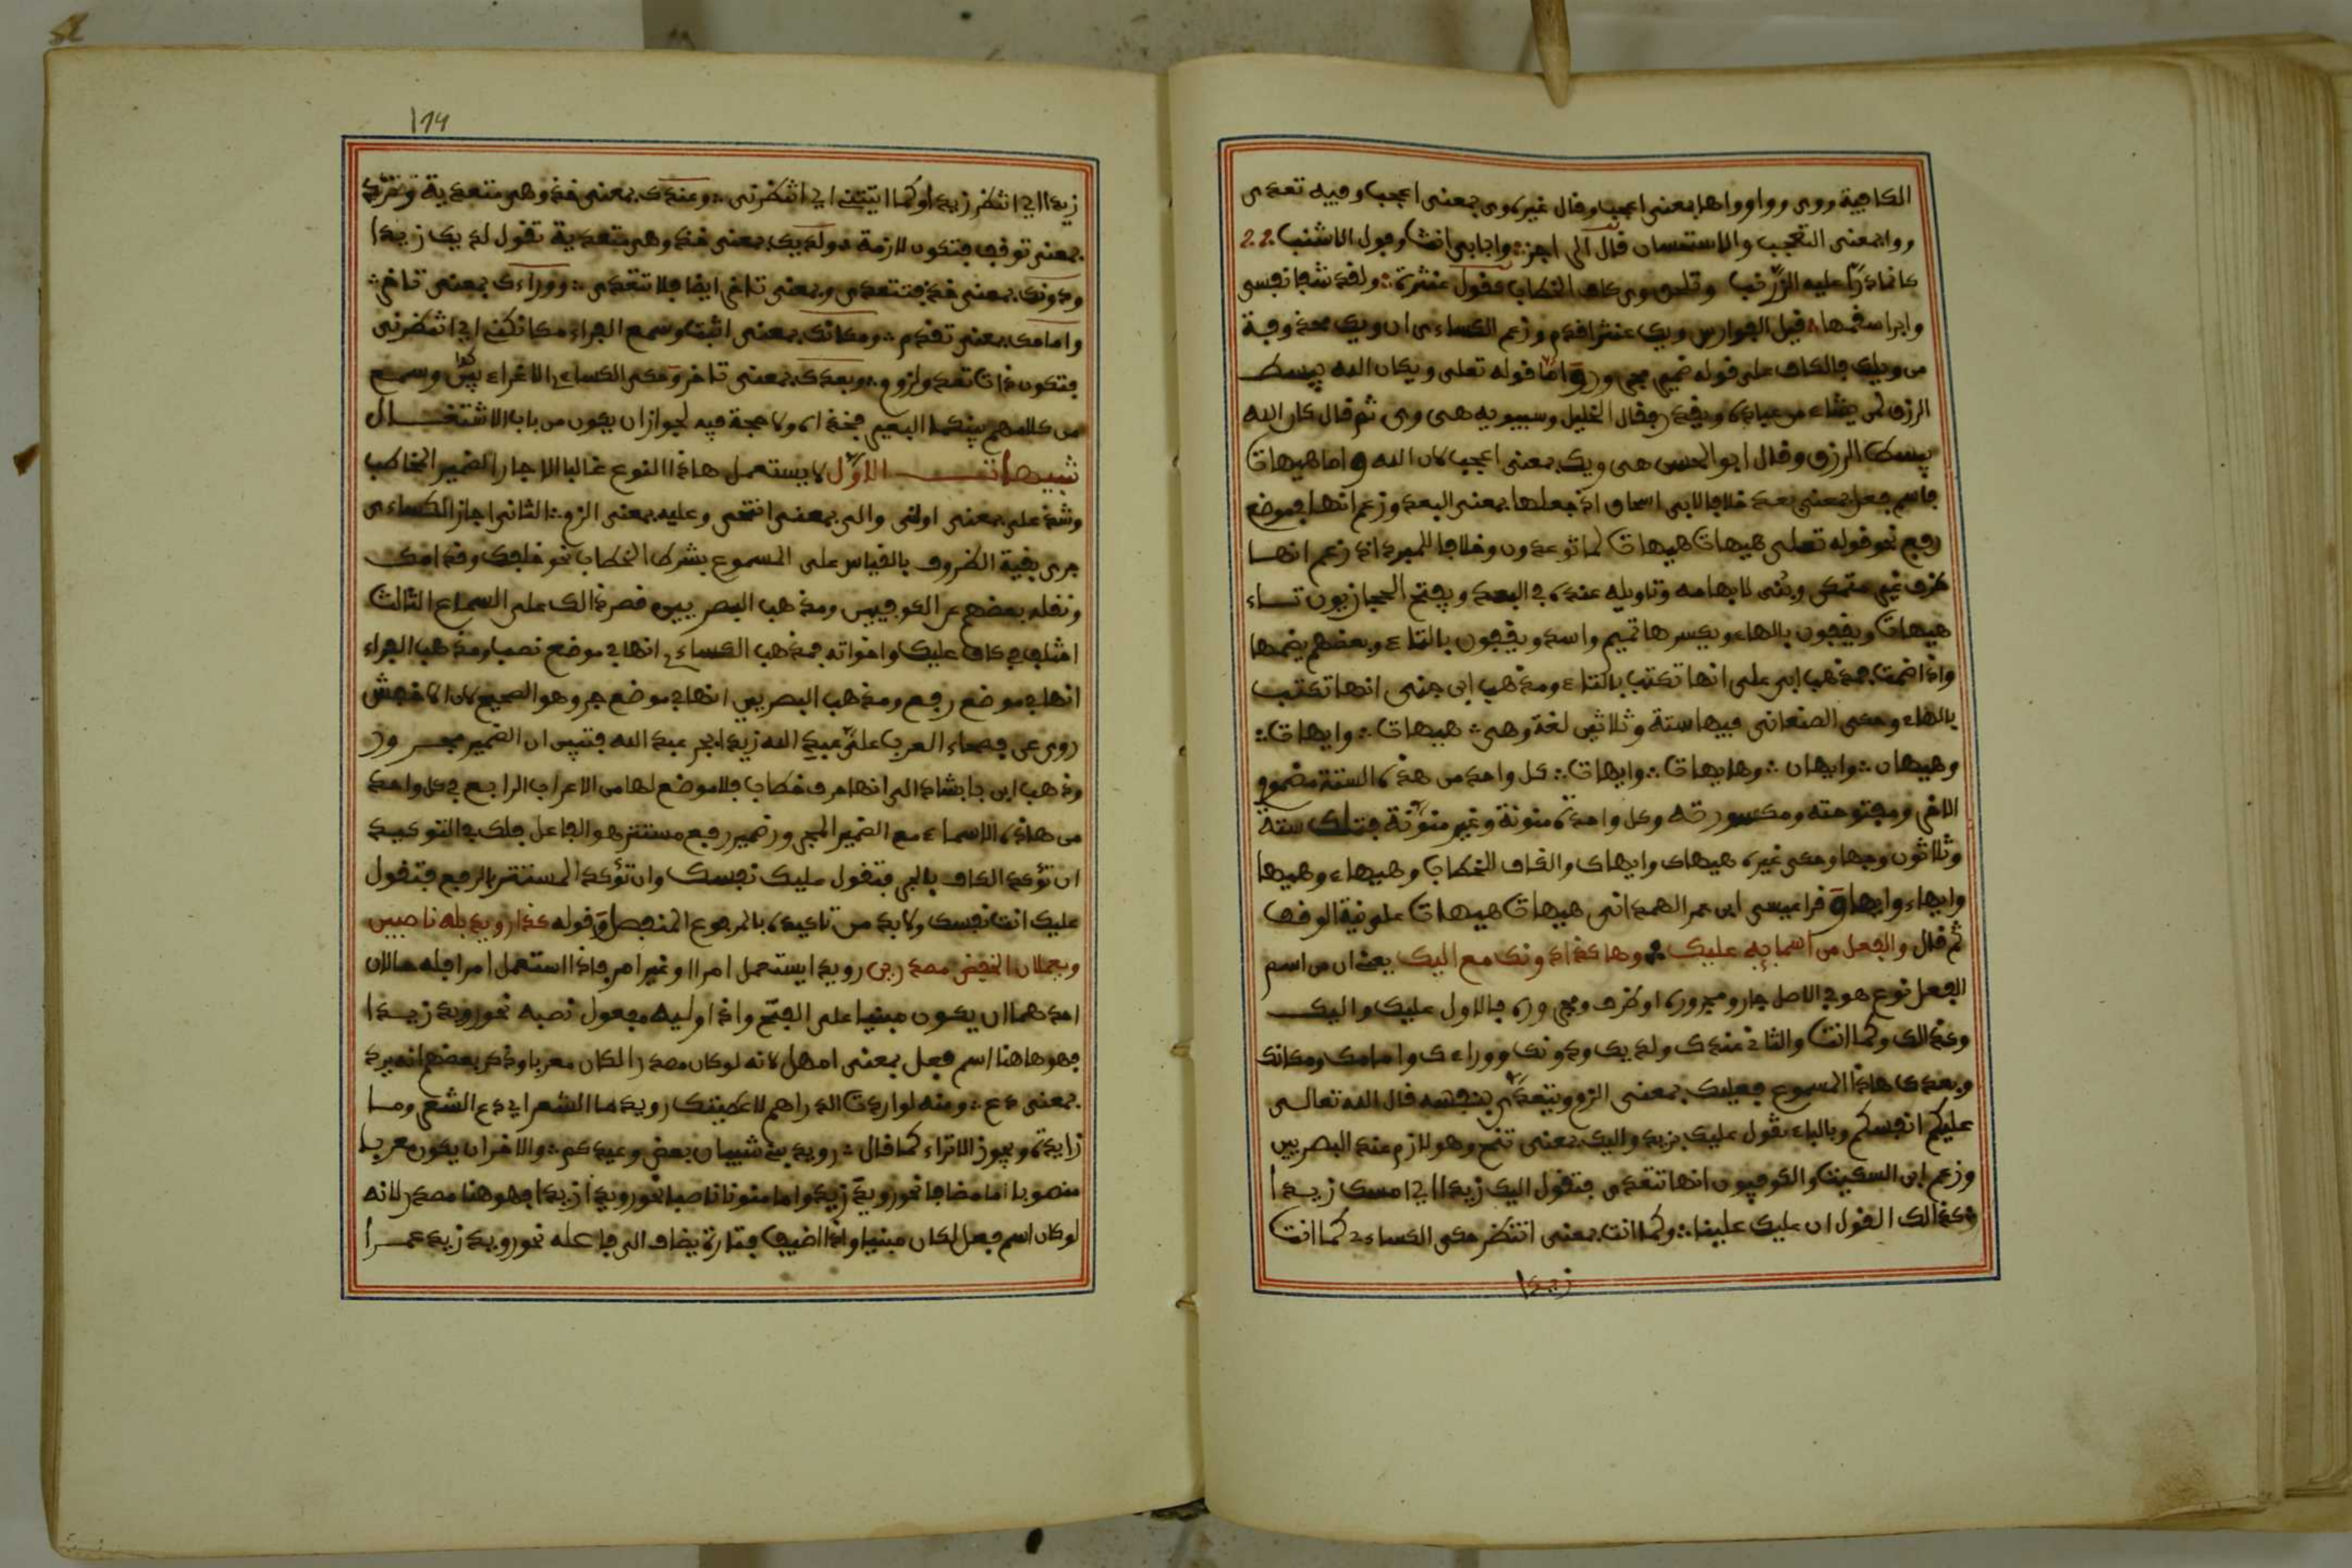 الكافية ووى وواو واها بمعنى اعجب وقال غيره وى بمعنى اعجب وفيه تعدى
ووا بمعنى التعجب والاستحسان قال الراجز وابابى انت وفوك الاشنب
كانما ذر عليه الزرنب وتلحق وى كاف الخطاب كقول عنترة ولقد شفا نفسى
وابرا سقمها قيل الفوارس ويك عنتر اقدم وزعم الكساءى ان ويك محذوفة
من ويلك فالكاف على قوله ضمير مجرور واما قوله تعلى ويكان الله يبسط
الرزق لمن يشاء من عباده ويقدر فقال الخليل وسيبويه هى وى ثم قال كان الله
يبسط الرزق وقال ابو الحسن هى ويك بمعنى اعجب لان الله واما هيهات
فاسم فعل بمعنى بعد خلافا لابى اسحاق اذ جعلها بمعنى البعد وزعم انها فى موضع
رفع نحو قوله تعلى هيهات هيهات لما توعدون وخلافا للمبرد اذ زعم انها
ظرف غير متمكن وبنى لابهامه وتاويله عنده فى البعد ويفتح الحجازيون تاء
هيهات ويقفون بالهاء ويكسرها تميم واسد ويقفون بالتاء وبعضهم يضمها
واذا ضمت فمذهب ابى على انها تكتب بالتاء ومذهب ابن جنى انها تكتب
بالهاء وحكى الصنعانى فيها ستة وثلاثين لغة وهى هيهات وايهات
وهيهان وايهان وهايهات وايهات كل واحد من هذه الستة مضموم
الاخر ومفتوحته ومكسورته وكل واحدة منونة وغير منونة فتلك ستة
وثلاثون وجها وحكى غيره هيهاك وايهاك والكاف للخطاب وهيهاء وهيها
وايهاء وايهاه وقرا عيسى ابن عمر الهمدانى هيهات هيهات على نية الوقف
ثم قال والفعل من اسمايه عليك وهاكذا دونك مع اليك يعنى ان من اسم
الفعل نوع هو فى الاصل جار ومجرور او ظرف ومجرور فالاول عليك واليك
وكذالك وكما انت والثانى عندك ولديك ودونك ووراءك وامامك ومكانك
وبعدك هاذا المسموع فعليك بمعنى الزم ويتعدى بنفسه قال الله تعالى
عليكم انفسكم وبالباء تقول عليك بزيد واليك بمعنى تنح وهو لازم عند البصريين
وزعم ابن السكيت والكوفيون انها تتعدى فتقول اليك زيدا اى امسك زيدا
وكذالك القول ان عليك علينا وكما انت بمعنى انتظر حكى الكساءى كما انت
زيدا
زيدا اى انتظر زيدا وكما انتنى اى انتظرنى وعندك بمعنى خذ وهى متعدية وترد
بمعنى توقف فتكون لازمة ولديك بمعنى خذ وهى متعدية تقول لديك زيدا
ودونك بمعنى خذ فتتعدى وبمعنى تاخر ايضا فلا تتعدى ووراءك بمعنى تاخر
وامامك بمعنى تقدم ومكانك بمعنى اثبت وسمع الفراء مكانكنى اى انتظرنى
فتكون ذات تعد ولزوم وبعدك بمعنى تاخر وحكى الكساءى الاغراء بين وسمع
من كلامهم بينكما البعير فخذاه ولا حجة فيه لجواز ان يكون من باب الاشتغال
تنبيهات الاول لا يستعمل هاذا النوع غالبا الا جارا لضمير المخاطب
وشذ على بمعنى اولنى والى بمعنى انتحى وعليه بمعنى الزم الثانى اجاز الكساءى
جرى بقية الظروف بالقياس على المسموع بشرط الخطاب نحو خلفك وقدامك
ونقله بعضهم عن الكوفيين ومذهب البصريين قصر ذالك على السماع الثالث
اختلف فى كاف عليك واخواته فمذهب الكساءى انها فى موضع نصب ومذهب الفراء
انها فى موضع رفع ومذهب البصريين انها فى موضع جر وهو الصحيح لان الاخفش
روى عن فصحاء العرب على عبد الله زيدا بجر عبد الله فتبين ان الضمير مجرور
وذهب ابن بابشاد الى انها حرف خطاب فلا موضع لها من الاعراب الرابع فى كل واحد
من هاذه الاسماء مع الضمير المجرور ضمير رفع مستتر هو الفاعل فلك فى التوكيد
ان تؤكد الكاف بالجر فتقول عليك نفسك وان تؤكد المستتر بالرفع فتقول
عليك انت نفسك ولابد من تاكيده بالمرفوع المنفصل وقوله كذا رويد بله ناصبين
ويعملان الخفض مصدرين رويد ايستعمل امرا وغير امر فاذا استعمل امرا فله حالان
احدهما ان يكون مبنيا على الفتح واذا وليه مفعول نصبه نحو رويد زيدا
فهو هاهنا اسم فعل بمعنى امهل لانه لو كان مصدرا لكان معربا وذكر بعضهم انه يرد
بمعنى دع ومنه لو اردت الدراهم لاعطيتك رويد ما الشعر اى دع الشعر وما
زايدة ويجوز الاتراء كما قال رويد بنى شيبان بعض وعيدكم والاخر ان يكون معربا
منصوبا اما مضافا نحو رويد زيد واما منونا ناصبا نحو رويدا زيدا فهو هنا مصدر لانه
لو كان اسم فعل لكان مبنيا واذا اضيف فتارة يضاف الى فاعله نحو رويد زيد عمرا